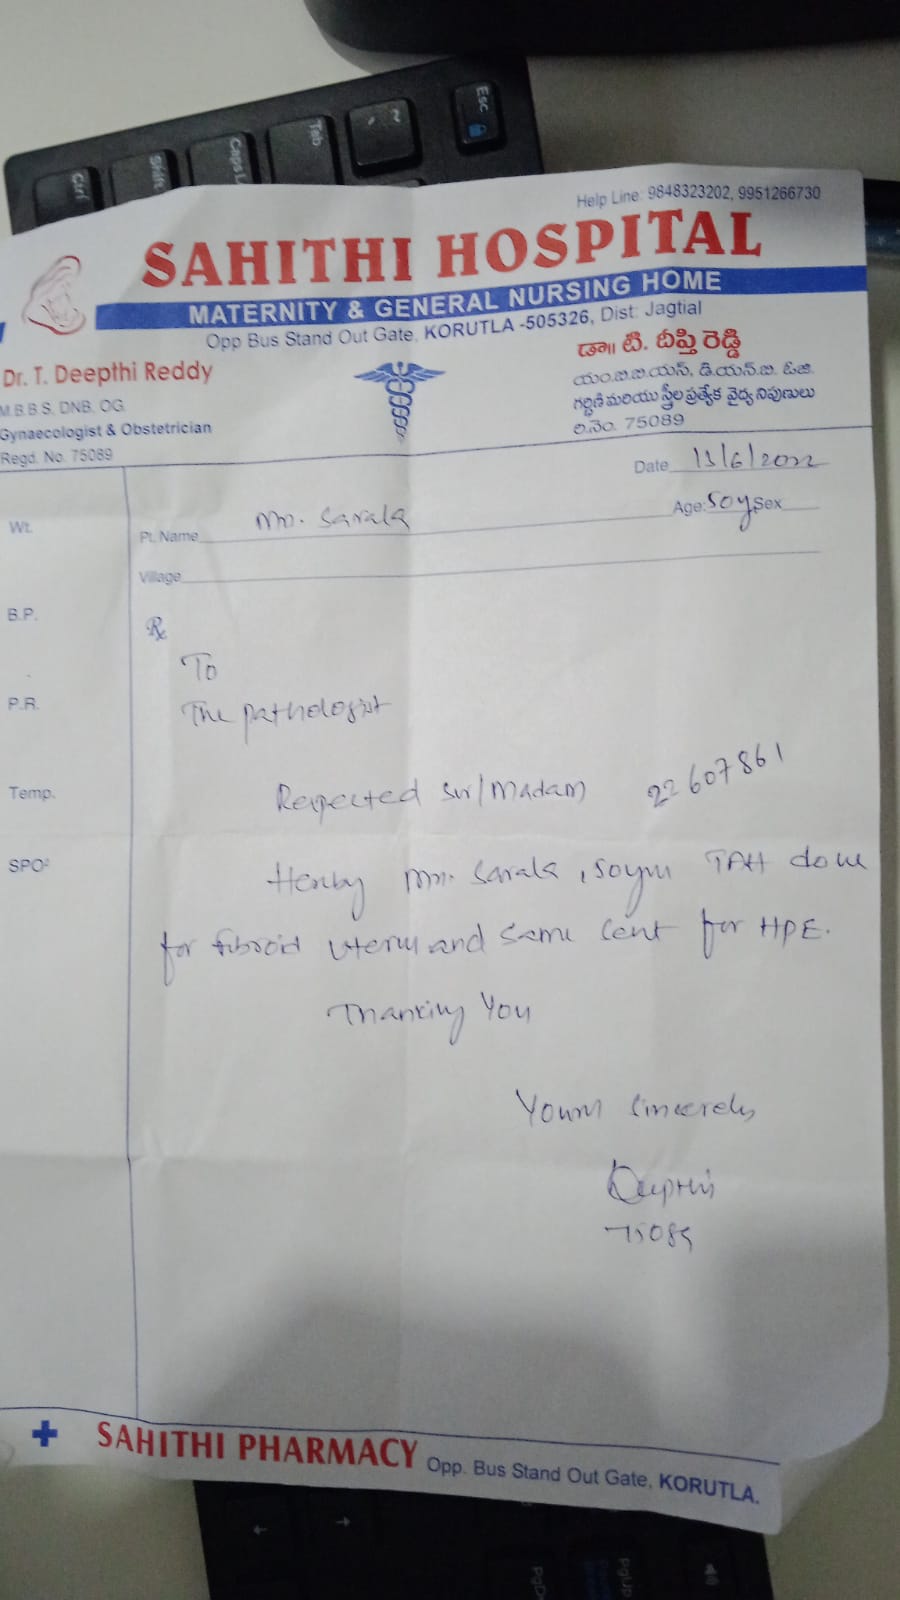 Esc
~
Tab
Caps L
Shift
Ctrl
Help Line: 9848323202, 9951266730
SAHITHI HOSPITAL
MATERNITY & GENERAL NURSING HOME
Opp Bus Stand Out Gate, KORUTLA -505326, Dist: Jagtial
Dr. T. Deepthi Reddy
M.B.B.S, DNB, OG
Gynaecologist & Obstetrician
Regd. No. 75089
డా॥ టి. దీప్తి రెడ్డి
యం.బి.బి.యస్, డి.యన్.బి. ఓ.జి.
గర్భిణి మరియు స్త్రీల ప్రత్యేక వైద్య నిపుణులు
రి.నెం. 75089
Date 13/6/2022
Wt.
Pt. Name Mrs. Sarala Age: 50y Sex
Village
B.P.
Rx
To
P.R.
The pathologist
Temp.
Respected Sir/Madam 22607861
SPO²
Hereby Mrs. Sarala, 50yrs TAH done
for fibroid uterus and same sent for HPE.
Thanking You
Yours sincerely
Deepthi
75089
SAHITHI PHARMACY Opp. Bus Stand Out Gate, KORUTLA.
PgUp